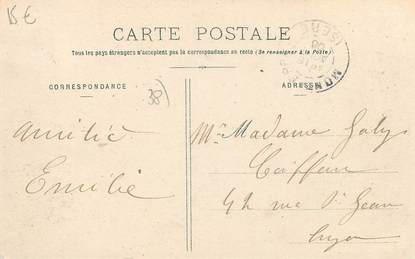 15€
CARTE POSTALE
Tous les pays étrangers n'acceptent pas la correspondance au recto (Se renseigner à la Poste).
CORRESPONDANCE
ADRESSE
38)
Amitié
Emilie
Mr Madame Galy
Coiffeur
42 rue St Jean
Lyon
ISÈRE